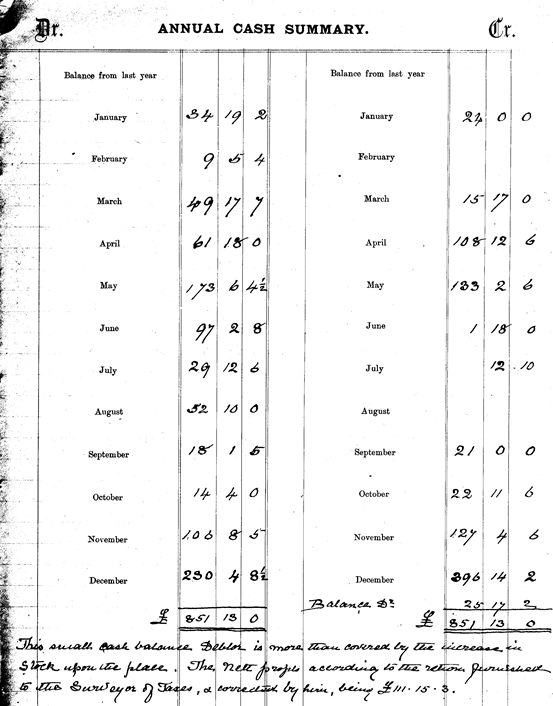 Dr. ANNUAL CASH SUMMARY. Cr.
Balance from last year Balance from last year
January 34 19 2 January 24 0 0
February 9 5 4 February
March 49 17 7 March 15 17 0
April 61 18 0 April 108 12 6
May 173 6 4½ May 133 2 6
June 97 2 8 June 1 18 0
July 29 12 6 July 12 10
August 52 10 0 August
September 18 1 5 September 21 0 0
October 14 4 0 October 22 11 6
November 106 8 5 November 127 4 6
December 230 4 8½ December 396 14 2
Balance Dr 25 17 2
£ 851 13 0 £ 851 13 0
This small cash balance Debtor is more than covered by the increase in
Stock upon the place. The Nett profits according to the return furnished
to the Surveyor of Taxes, & corrected by him, being £111.15.3.